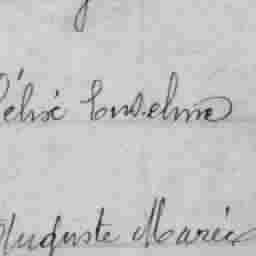 Félix Anselme
Auguste Marie